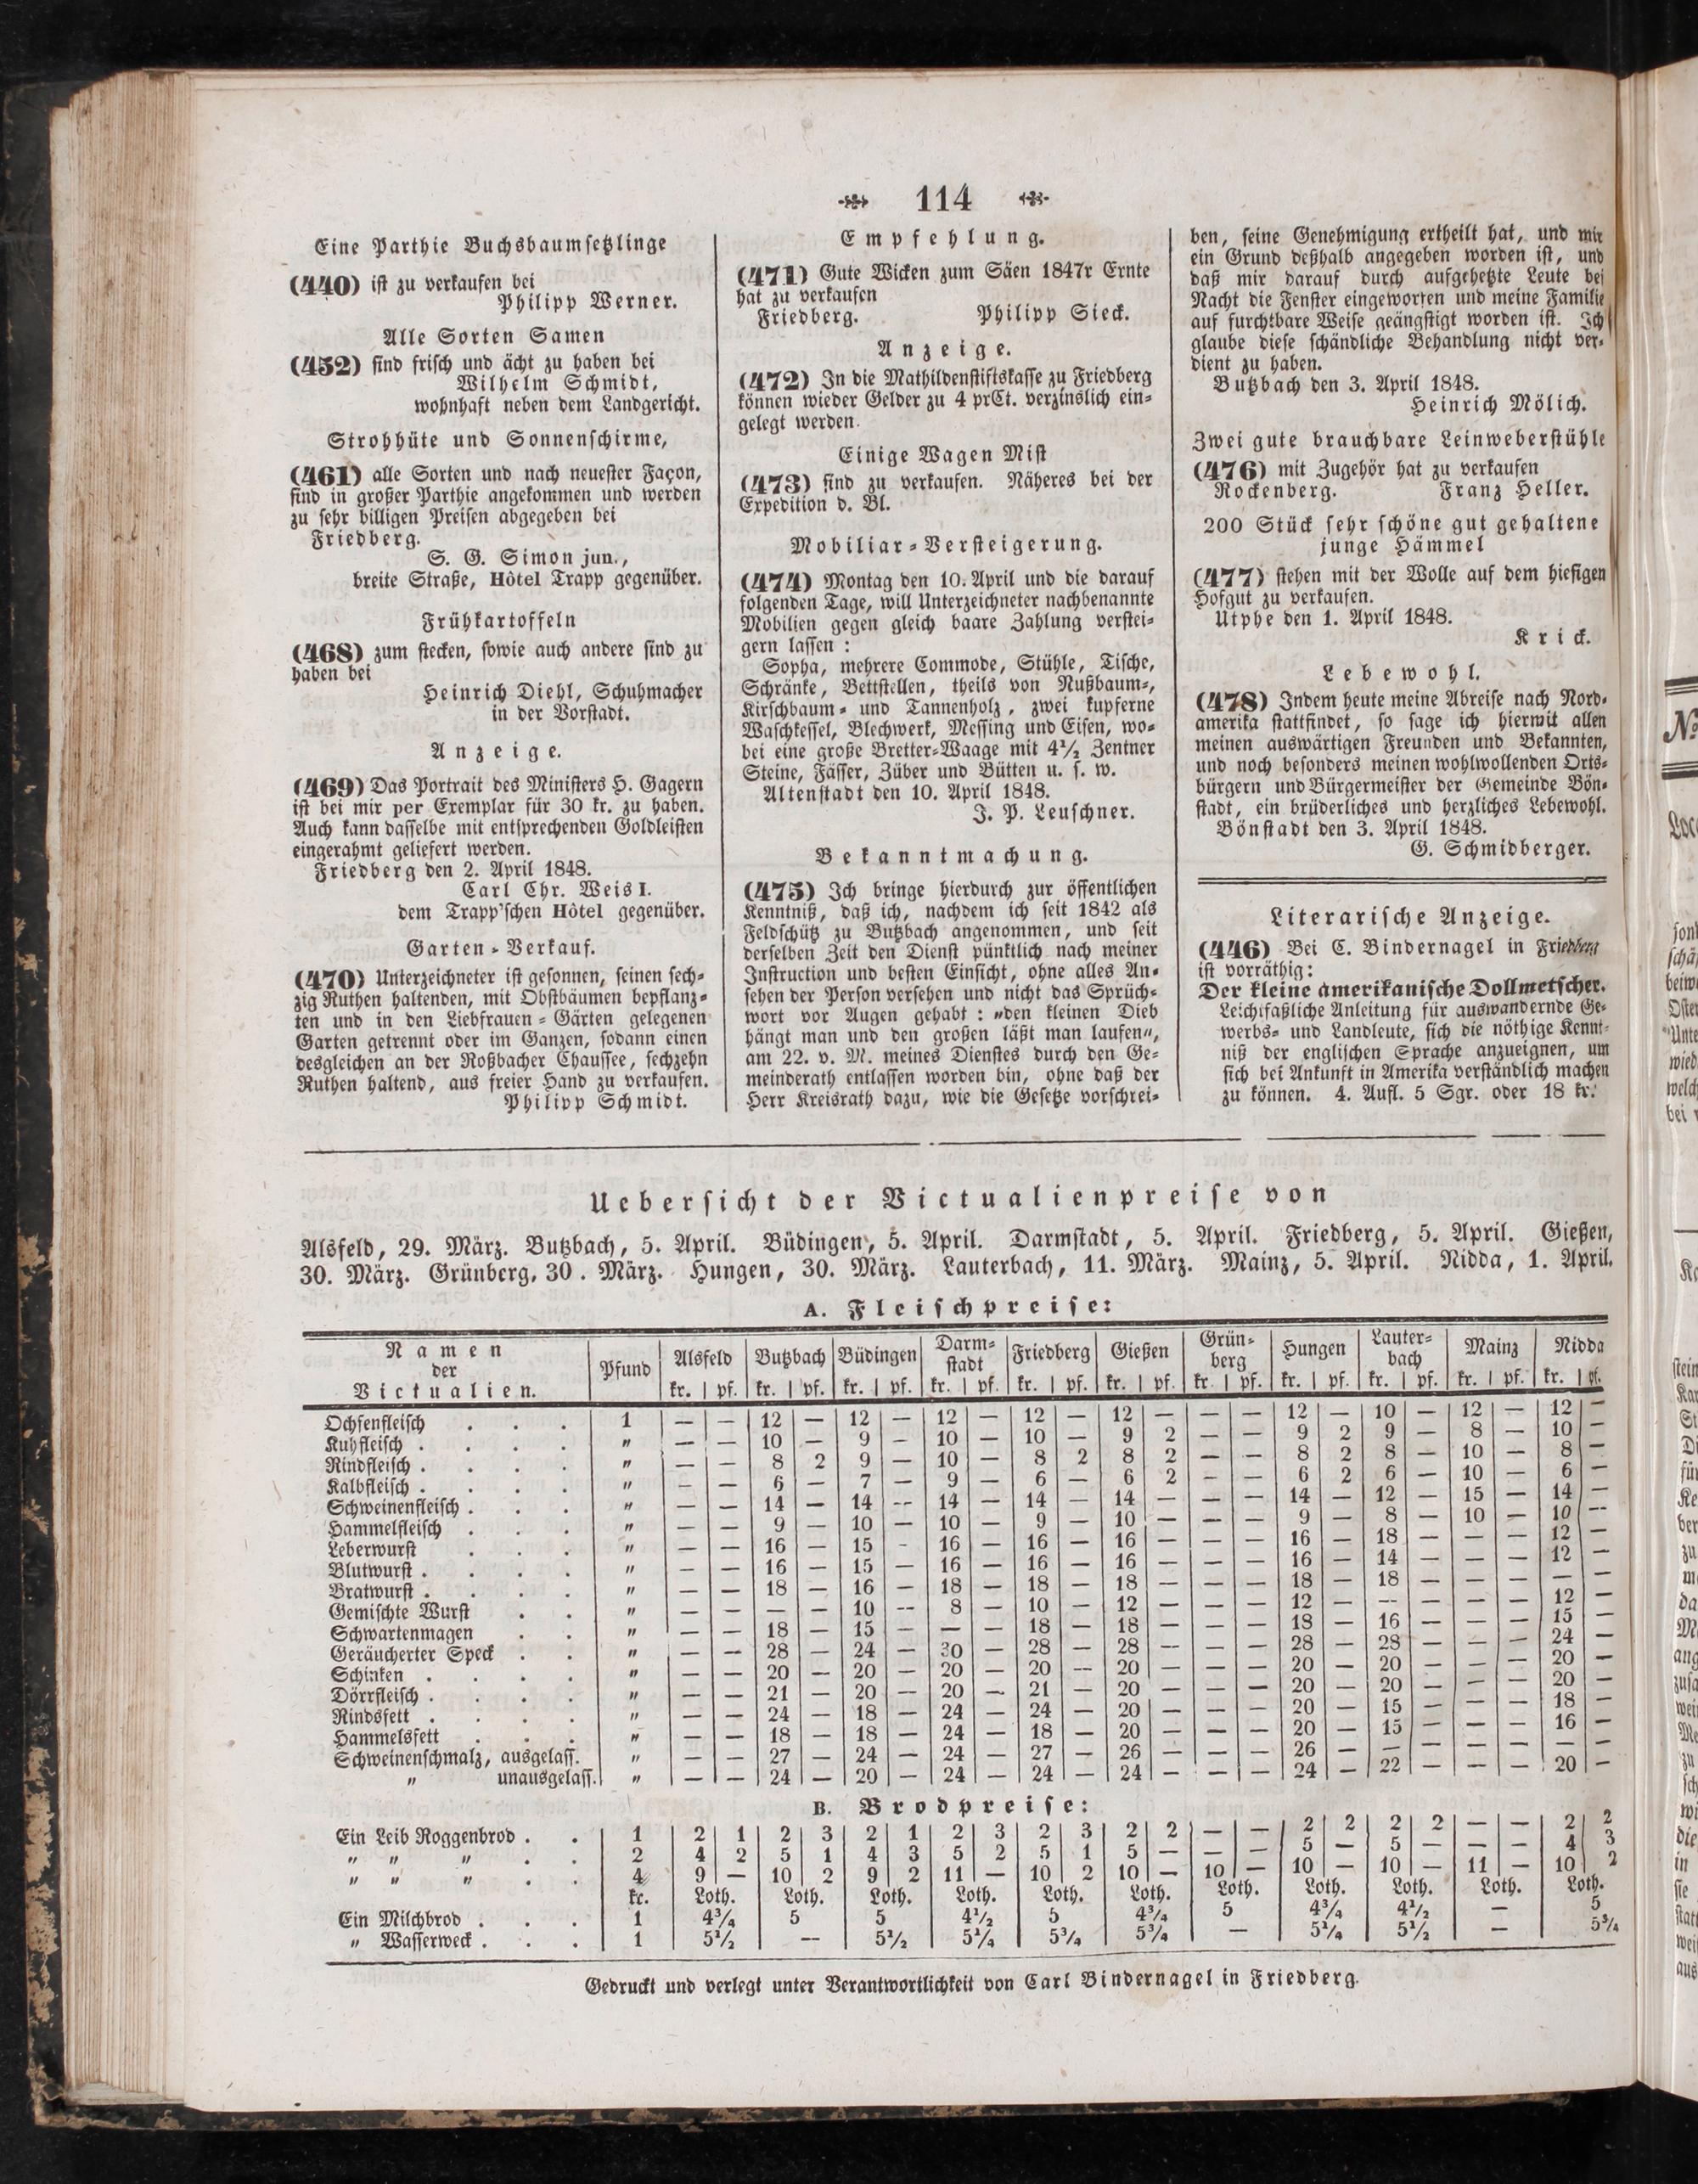 114
Eine Parthie Buchsbaumsetzlinge
(440) ist zu verkaufen bei
Philipp Werner.
Alle Sorten Samen
(452) sind frisch und ächt zu haben bei
Wilhelm Schmidt,
wohnhaft neben dem Landgericht.
Strohhüte und Sonnenschirme,
(461) alle Sorten und nach neuester Façon,
sind in großer Parthie angekommen und werden
zu sehr billigen Preisen abgegeben bei
Friedberg.
S. G. Simon jun.,
breite Straße, Hôtel Trapp gegenüber.
Frühkartoffeln
(468) zum stecken, sowie auch andere sind zu
haben bei
Heinrich Diehl, Schuhmacher
in der Vorstadt.
Anzeige.
(469) Das Portrait des Ministers H. Gagern
ist bei mir per Exemplar für 30 kr. zu haben.
Auch kann dasselbe mit entsprechenden Goldleisten
eingerahmt geliefert werden.
Friedberg den 2. April 1848.
Carl Chr. Weis I.
dem Trapp'schen Hôtel gegenüber.
Garten-Verkauf.
(470) Unterzeichneter ist gesonnen, seinen sech-
zig Ruthen haltenden, mit Obstbäumen bepflanz-
ten und in den Liebfrauen-Gärten gelegenen
Garten getrennt oder im Ganzen, sodann einen
desgleichen an der Roßbacher Chaussee, sechzehn
Ruthen haltend, aus freier Hand zu verkaufen.
Philipp Schmidt.
Empfehlung.
(471) Gute Wicken zum Säen 1847r Ernte
hat zu verkaufen
Friedberg. Philipp Sieck.
Anzeige.
(472) In die Mathildenstiftskasse zu Friedberg
können wieder Gelder zu 4 prCt. verzinslich ein-
gelegt werden.
Einige Wagen Mist
(473) sind zu verkaufen. Näheres bei der
Expedition d. Bl.
Mobiliar-Versteigerung.
(474) Montag den 10. April und die darauf
folgenden Tage, will Unterzeichneter nachbenannte
Mobilien gegen gleich baare Zahlung verstei-
gern lassen :
Sopha, mehrere Commode, Stühle, Tische,
Schränke, Bettstellen, theils von Nußbaum-,
Kirschbaum- und Tannenholz, zwei kupferne
Waschkessel, Blechwerk, Messing und Eisen, wo-
bei eine große Bretter-Waage mit 4½ Zentner
Steine, Fässer, Züber und Bütten u. s. w.
Altenstadt den 10. April 1848.
J. P. Leuschner.
Bekanntmachung.
(475) Ich bringe hierdurch zur öffentlichen
Kenntniß, daß ich, nachdem ich seit 1842 als
Feldschütz zu Butzbach angenommen, und seit
derselben Zeit den Dienst pünktlich nach meiner
Instruction und besten Einsicht, ohne alles An-
sehen der Person versehen und nicht das Sprüch-
wort vor Augen gehabt : „den kleinen Dieb
hängt man und den großen läßt man laufen",
am 22. v. M. meines Dienstes durch den Ge-
meinderath entlassen worden bin, ohne daß der
Herr Kreisrath dazu, wie die Gesetze vorschrei-
ben, seine Genehmigung ertheilt hat, und mir
ein Grund deßhalb angegeben worden ist, und
daß mir darauf durch aufgehetzte Leute bei
Nacht die Fenster eingeworfen und meine Familie
auf furchtbare Weise geängstigt worden ist. Ich
glaube diese schändliche Behandlung nicht ver-
dient zu haben.
Butzbach den 3. April 1848.
Heinrich Mölich.
Zwei gute brauchbare Leinweberstühle
(476) mit Zugehör hat zu verkaufen
Rockenberg. Franz Heller.
200 Stück sehr schöne gut gehaltene
junge Hämmel
(477) stehen mit der Wolle auf dem hiesigen
Hofgut zu verkaufen.
Utphe den 1. April 1848.
Krick.
Lebewohl.
(478) Indem heute meine Abreise nach Nord-
amerika stattfindet, so sage ich hiermit allen
meinen auswärtigen Freunden und Bekannten,
und noch besonders meinen wohlwollenden Orts-
bürgern und Bürgermeister der Gemeinde Bön-
stadt, ein brüderliches und herzliches Lebewohl.
Bönstadt den 3. April 1848.
G. Schmidberger.
Literarische Anzeige.
(446) Bei C. Bindernagel in Friedberg
ist vorräthig:
Der kleine amerikanische Dollmetscher.
Leichtfaßliche Anleitung für auswandernde Ge-
werbs- und Landleute, sich die nöthige Kennt-
niß der englischen Sprache anzueignen, um
sich bei Ankunft in Amerika verständlich machen
zu können. 4. Aufl. 5 Sgr. oder 18 kr.
Uebersicht der Victualienpreise von
Alsfeld, 29. März. Butzbach, 5. April. Büdingen, 5. April. Darmstadt, 5. April. Friedberg, 5. April. Gießen,
30. März. Grünberg, 30. März. Hungen, 30. März. Lauterbach, 11. März. Mainz, 5. April. Nidda, 1. April.
A. Fleischpreise:
Namen der Victualien. Pfund Alsfeld Butzbach Büdingen Darm-stadt Friedberg Gießen Grün-berg Hungen Lauter-bach Mainz Nidda
kr. pf. kr. pf. kr. pf. kr. pf. kr. pf. kr. pf. kr. pf. kr. pf. kr. pf. kr. pf. kr. pf.
Ochsenfleisch . . . 1 — — 12 — 12 — 12 — 12 — 12 — — — 12 — 10 — 12 — 12 —
Kuhfleisch . . . . " — — 10 — 9 — 10 — 10 — 9 2 — — 9 2 9 — 8 — 10 —
Rindfleisch . . . . " — — 8 2 9 — 10 — 8 2 8 2 — — 8 2 8 — 10 — 8 —
Kalbfleisch . . . . " — — 6 — 7 — 9 — 6 — 6 2 — — 6 2 6 — 10 — 6 —
Schweinenfleisch . . . " — — 14 — 14 — 14 — 14 — 14 — — — 14 — 12 — 15 — 14 —
Hammelfleisch . . . " — — 9 — 10 — 10 — 9 — 10 — — — 9 — 8 — 10 — 10 —
Leberwurst . . . " — — 16 — 15 — 16 — 16 — 16 — — — 16 — 18 — — — 12 —
Blutwurst . . . . " — — 16 — 15 — 16 — 16 — 16 — — — 16 — 14 — — — 12 —
Bratwurst . . . . " — — 18 — 16 — 18 — 18 — 18 — — — 18 — 18 — — — — —
Gemischte Wurst . . " — — — — 10 — 8 — 10 — 12 — — — 12 — — — — — 12 —
Schwartenmagen . . " — — 18 — 15 — — — 18 — 18 — — — 18 — 16 — — — 15 —
Geräucherter Speck . . " — — 28 — 24 — 30 — 28 — 28 — — — 28 — 28 — — — 24 —
Schinken . . . . " — — 20 — 20 — 20 — 20 — 20 — — — 20 — 20 — — — 20 —
Dörrfleisch . . . . " — — 21 — 20 — 20 — 21 — 20 — — — 20 — 20 — — — 20 —
Rindsfett . . . . " — — 24 — 18 — 24 — 24 — 20 — — — 20 — 15 — — — 18 —
Hammelsfett . . . " — — 18 — 18 — 24 — 18 — 20 — — — 20 — 15 — — — 16 —
Schweinenschmalz, ausgelass. " — — 27 — 24 — 24 — 27 — 26 — — — 26 — — — — — — —
" unausgelass. " — — 24 — 20 — 24 — 24 — 24 — — — 24 — 22 — — — 20 —
B. Brodpreise:
Ein Leib Roggenbrod . . 1 2 1 2 3 2 1 2 3 2 3 2 2 — — 2 2 2 2 — — 2 2
" " " . . 2 4 2 5 1 4 3 5 2 5 1 5 — — — 5 — 5 — — — 4 3
" " " . . 4 9 — 10 2 9 2 11 — 10 2 10 — 10 — 10 — 10 — 11 — 10 2
kr. Loth. Loth. Loth. Loth. Loth. Loth. Loth. Loth. Loth. Loth. Loth.
Ein Milchbrod . . . 1 4¾ 5 5 4½ 5 4¾ 5 4¾ 4½ — 5
" Wasserweck . . . 1 5½ — 5½ 5¼ 5¾ 5¾ — 5¼ 5½ — 5¾
Gedruckt und verlegt unter Verantwortlichkeit von Carl Bindernagel in Friedberg.